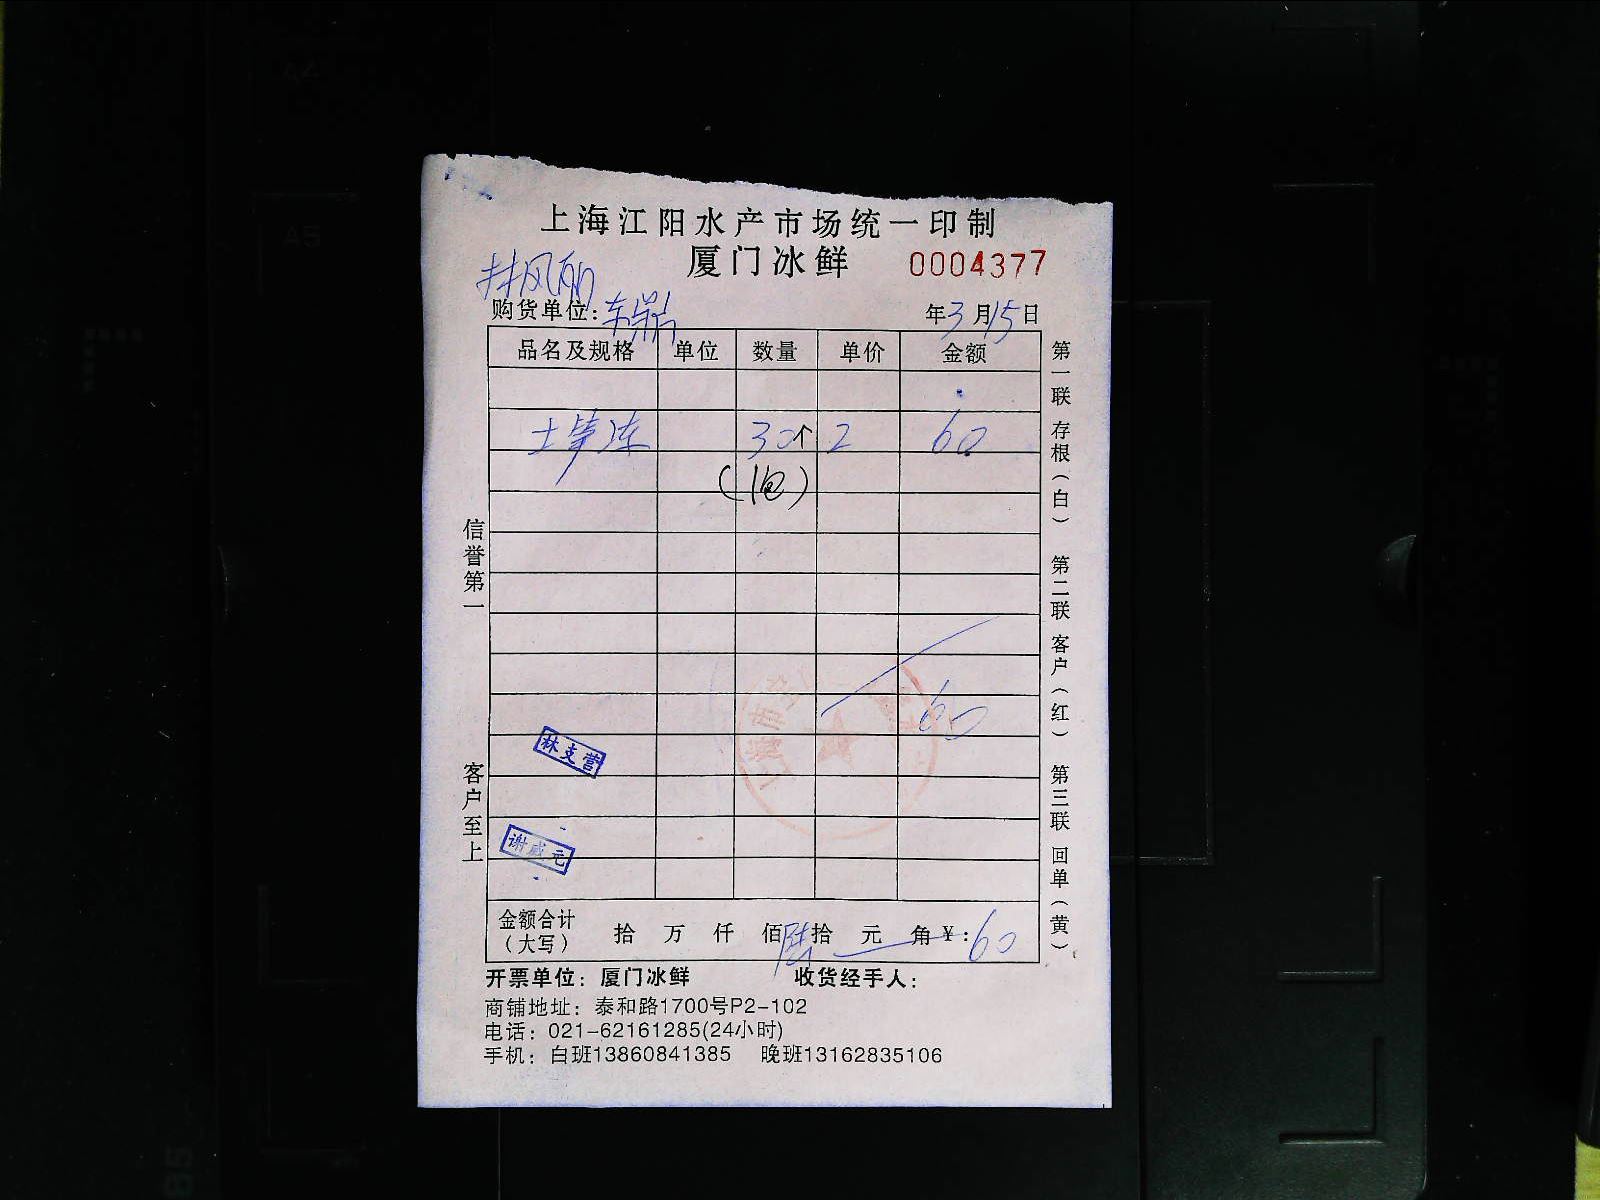 上海江阳水产市场统一印制
厦门冰鲜 0004377
购货单位: 年3月15日
品名及规格 单位 数量 单价 金额
土笋冻 30个 2 60
(1包)
60
林支营
谢咸元
金额合计(大写) 拾 万 仟 佰 陆拾 元 角 ¥:60
开票单位: 厦门冰鲜 收货经手人:
商铺地址: 泰和路1700号P2-102
电话: 021-62161285(24小时)
手机: 白班13860841385 晚班13162835106
信誉第一
客户至上
第一联 存根(白)
第二联 客户(红)
第三联 回单(黄)
A5
B5